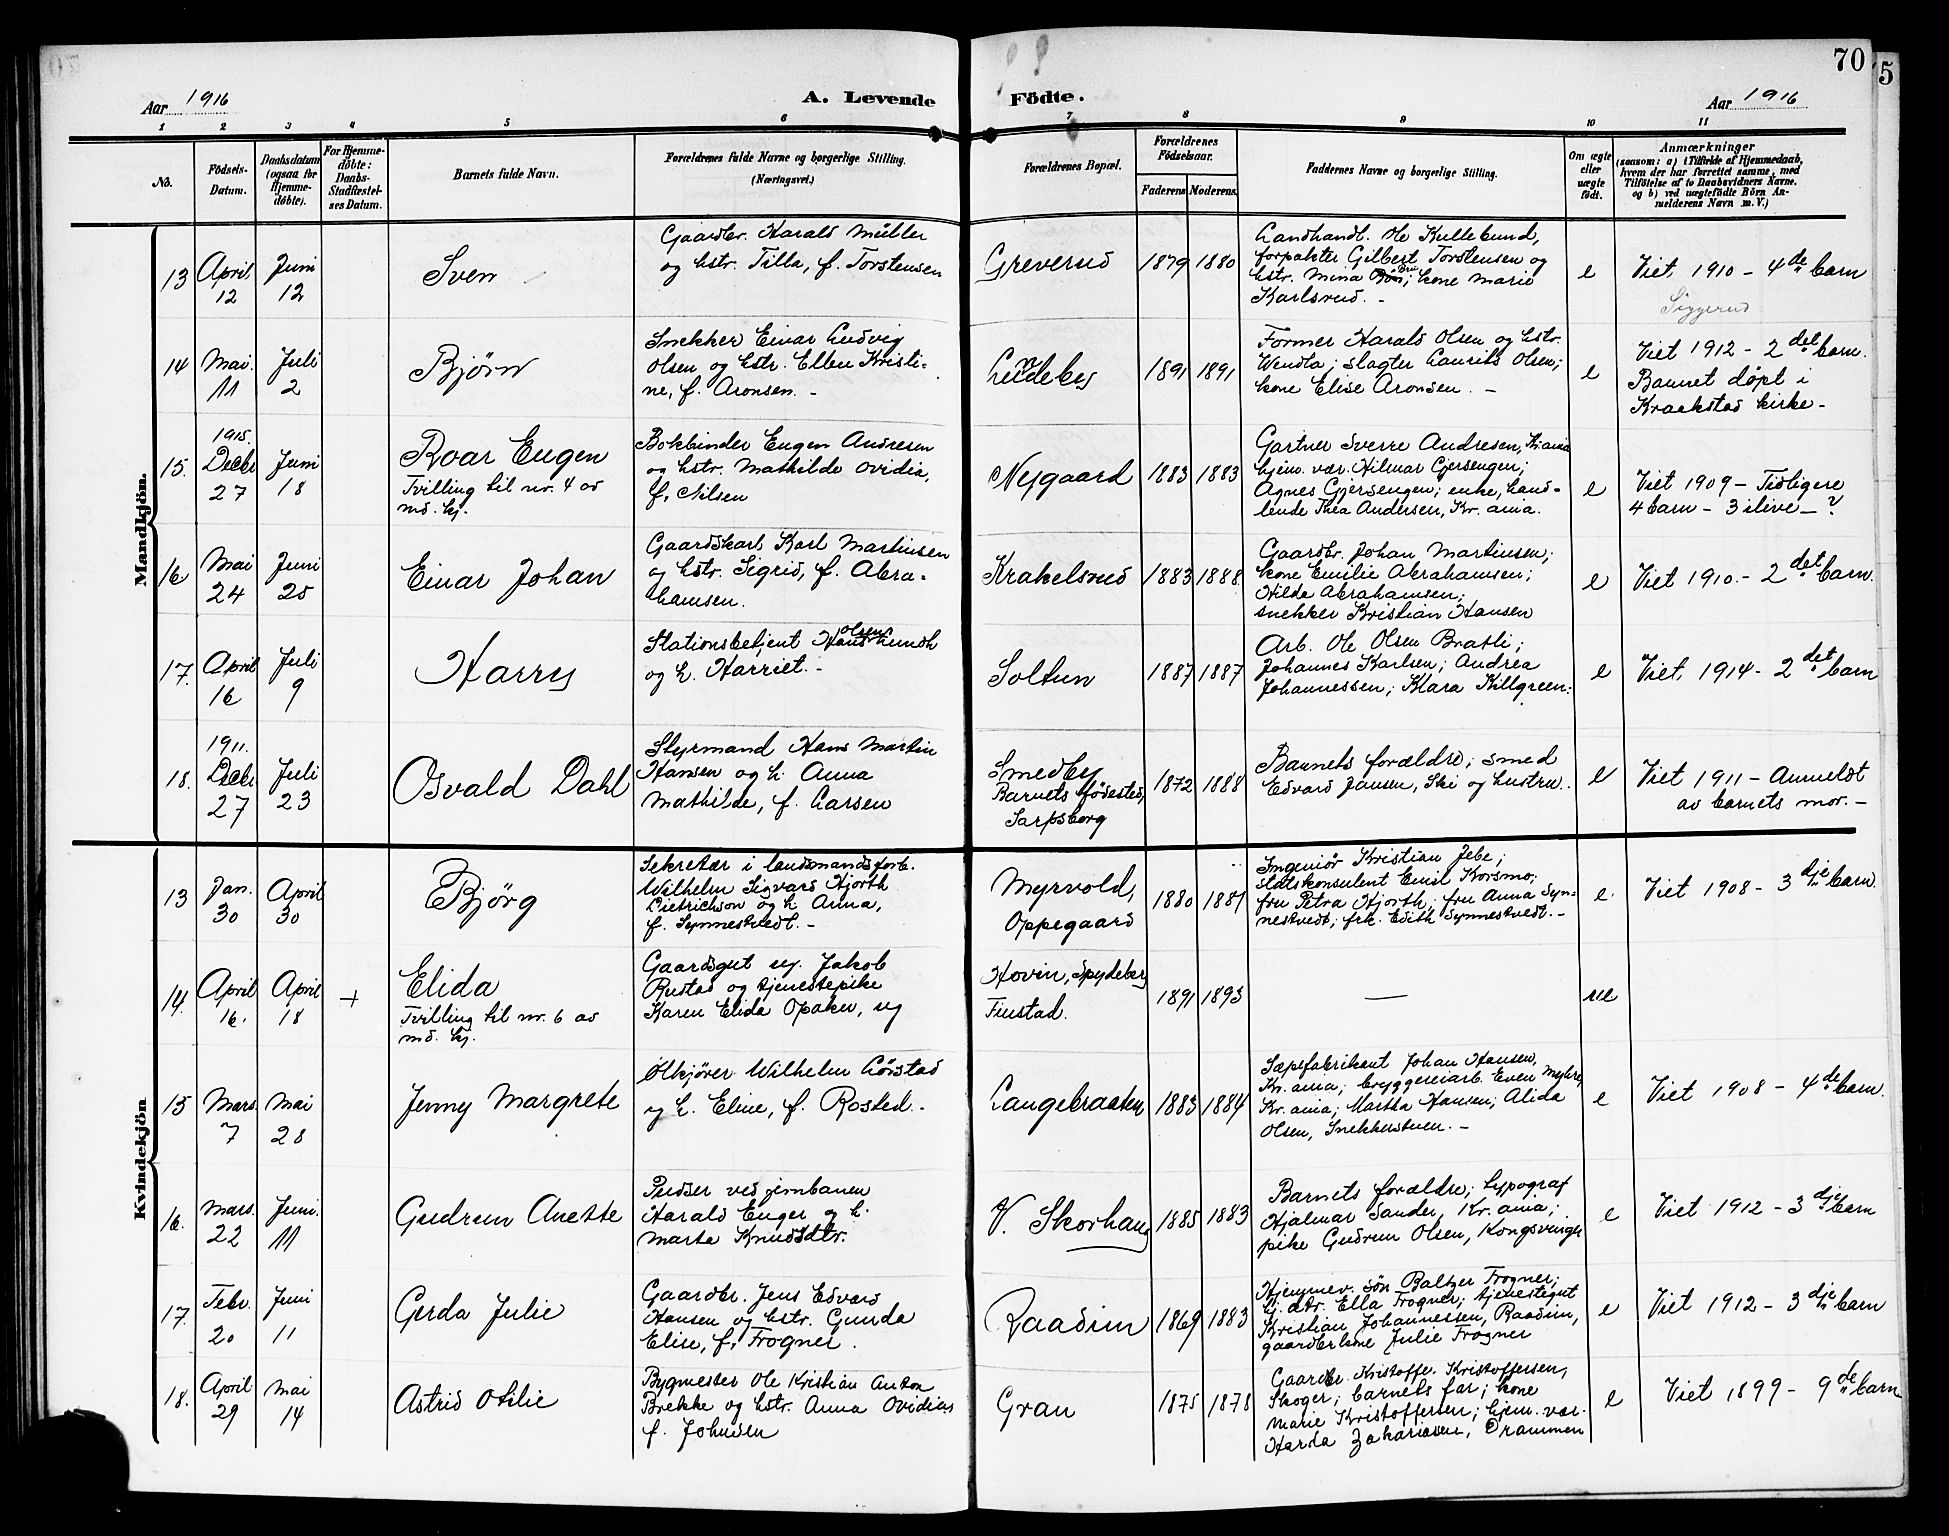 70
5
Aar 1916
A. Levende
Födte.
Aar 1916
1 2 3 4 5 6 7 8 9 10 11
No.
Födsels-
Datum.
Daabsdatum
(ogsaa for
Hjemme-
döbte).
For Hjemme-
döbte:
Daabs-
Stadfæstel-
ses Datum.
Barnets fulde Navn.
Forældrenes fulde Navne og borgerlige Stilling.
(Næringsvei.)
Forældrenes Bopæl.
Forældrenes
Födselsaar.
Faderens
Moderens.
Faddernes Navne og borgerlige Stilling.
Om ægte
eller
uægte
födt.
Anmærkninger
(saasom: a) i Tilfælde af Hjemmedaab,
hvem der har forrettet samme, med
Tilföielse af to Daabsvidners Navne.
og b) ved uægtefödte Börn An-
melderens Navn m. V.)
Mandkjön.
13
April
12
Juni
12
Sven
Gaardbr. Harald Müller
og hstr. Tilla, f. Torstensen
Greverud
1879
1880
Landhandl. Ole Kullebund,
forpakter Gilbert Torstensen og
hstr. Mina; kone Marie
Karlsrud. -
e
Viet 1910 - 4de barn
Siggerud
14
Mai
11
Juli
2
Bjørn
Snekker Einar Ludvig
Olsen og hstr. Ellen Kristi-
ne, f. Aronsen. -
Lundeby
1891
1891
Former Harald Olsen og hstr.
Wendla; slagter Laurits Olsen;
kone Elise Aronsen. -
e
Viet 1912 - 2det barn.
Barnet døpt i
Kraakstad kirke -
15
1915.
Decbr
27
Juni
18
Roar Eugen
Tvilling til nr. 4 av
md. kj.
Bokbinder Eugen Andresen
og hstr. Mathilde Ovidia,
f. Nilsen
Nygaard
1883
1883
Gartner Sverre Andresen, Kr.ania
hjem. vær. Hilmar Gjersengen;
Agnes Gjersengen; enke, hand-
lende Thea Andersen, Kr.ania.
e
Viet 1909 - Tidligere
4 barn - 3 ilive - ?
16
Mai
24
Juni
25
Einar Johan
Gaardskarl Karl Martinsen
og hstr. Sigrid, f. Abra-
hamsen.
Krakelsrud
1883
1888
Gaardbr. Johan Martinsen;
kone Emilie Abrahamsen;
Hilda Abrahamsen;
snekker Kristian Hansen
e
Viet 1910 - 2det barn.
17.
April
16
Juli
9
Harry
Stationsbetjent Hans Olsen Lundh
og h. Harriet. -
Soltun
1887
1887
Arb. Ole Olsen Bratli;
Johannes Karlsen; Andrea
Johannessen; Klara Killgreen.
e
Viet 1914 - 2det barn
18.
1911.
Decbr
27
Juli
23
Osvald Dahl
Styrmand Hans Martin
Hansen og h. Anna
Mathilde, f. Larsen
Smedby
Barnets fødested,
Sarpsborg
1872
1888
Barnets forældre; smed
Edvard Jansen, Ski og hustru.
e
Viet 1911 - Anmeldt
av barnets mor. -
Kvindekjön
13
Jan.
30
April
30
Bjørg
Sekretær i landmandsforb.
Wilhelm Sigvard Hjorth
Dietrichson og h. Anna,
f. Synnestvedt. -
Myrvold,
Oppegaard
1880
1881
Ingeniör Kristian Jebe;
statskonsulent Emil Korsmo;
fru Petra Hjorth; fru Anna Syn-
nestvedt; frk. Edith Synnestvedt. -
e
Viet 1908 - 3dje barn.
14.
April
16.
April
18
+
Elida
Tvilling til nr. 6 av
md. kj.
Gaardsgut ug. Jakob
Rustad og tjenestepike
Karen Elida Opaker, ug
Hovin, Spydeberg
Finstad.
1891
1893
—
ue
15
Mars
7
Mai
28
Jenny Margrete
Ølkjører Wilhelm Lörstad
og h. Eline, f. Rosted. -
Langebraaten
1883
1884
Sæpefabrikant Johan Hansen,
Kr.ania; bryggeriarb. Even Myhre,
Kr.ania; Martha Hansen; Alida
Olsen, Snekkerstuen. -
e
Viet 1908 - 4de barn.
16.
Mars.
22
Juni.
11
Gudrun Anette
Pudser ved jernbanen
Harald Enger og h.
Marta Knudsdtr.
V. Skorhaug
1885
1883
Barnets forældre; typograf
Hjalmar Sander, Kr.ania;
pike Gudrun Olsen, Kongsvinger
e
Viet 1912 - 3dje barn
17.
Febr.
20
Juni
11
Gerda Julie
Gaardbr. Jens Edvard
Hansen og hstr. Gunda
Elise, f. Frogner.
Raadim
1869
1883
Hjemmev. søn Baltzer Frogner;
G.dtr. Ella Frogner; tjenestegut
Kristian Johannessen, Raadim,
gaardbr.kone Julie Frogner
e
Viet 1912 - 3dje barn
18.
April
29
Mai
14
Astrid Otilie
Bygmester Ole Kristian Anton
Brekke og hstr. Anna Ovidia,
f. Johnsen
Gran
1875
1878
Gaardbr. Kristoffer Kristoffersen,
Skoger; barnets far; kone
Marie Kristoffersen; hjem. vær.
Harda Zakariasen, Drammen
e
Viet 1899 - 9de barn